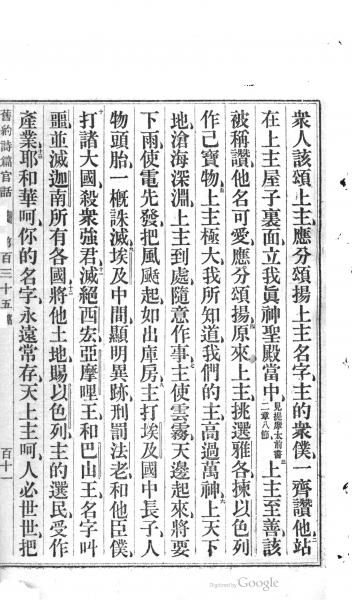 衆人該頌上主應分頌揚上主名字主的衆僕一齊讚他站
在上主屋子裏面立我眞神聖殿當中見提摩太前書二章八節上主至善該
被稱讚他名可愛應分頌揚原來上主挑選雅各揀以色列
作己寶物上主極大我所知道我們的主高過萬神上天下
地滄海深淵上主到處隨意作事主使雲霧天邊起來將要
下雨使電先發把風颳起如出庫房主打埃及國中長子人
物頭胎一槪誅滅埃及中間顯明異跡刑罰法老和他臣僕
打諸大國殺衆強君滅絕西宏亞摩哩王和巴山王名字叫
噩並滅迦南所有各國將他土地賜以色列主的選民受作
產業耶和華呵你的名字永遠常存天上主呵人必世世把
舊約詩篇官話 百三十五篇 百十一
Digitized by Google